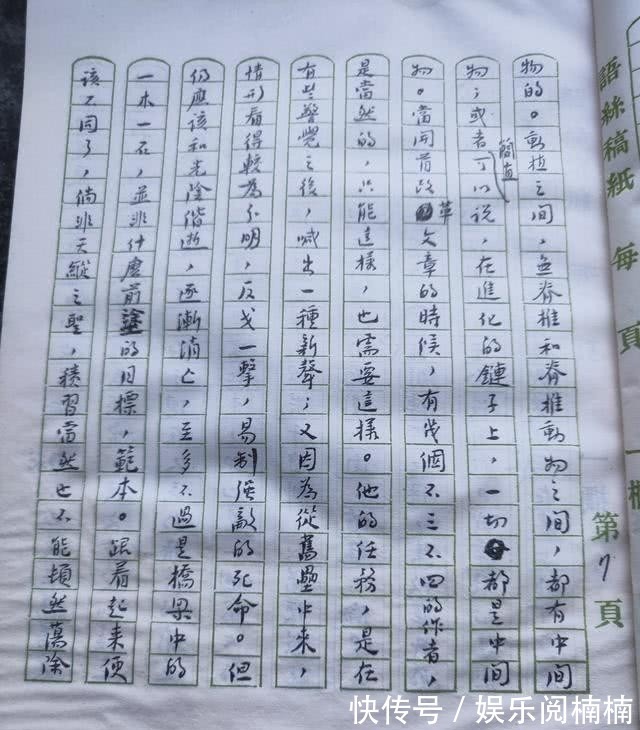 語絲稿紙 每頁
第7頁
物的。動植之間，無脊椎和脊椎動物之間，都有中間
物；或者簡直可以说，在進化的鏈子上，一切都是中間
物。當開首改革文章的時候，有幾個不三不四的作者，
是當然的，只能這樣，也需要這樣。他的任務，是在
有些警覺之後，喊出一種新聲；又因為從舊壘中來，
情形看得較為分明，反戈一擊，易制强敵的死命。但
仍應該和光陰偕逝，逐漸消亡，至多不過是橋梁中的
一木一石，並非什麽前塗的目標，範本。跟着起来便
該不同了，倘非天縱之聖，積習當然也不能頓然蕩除
快传号／娱乐阅楠楠